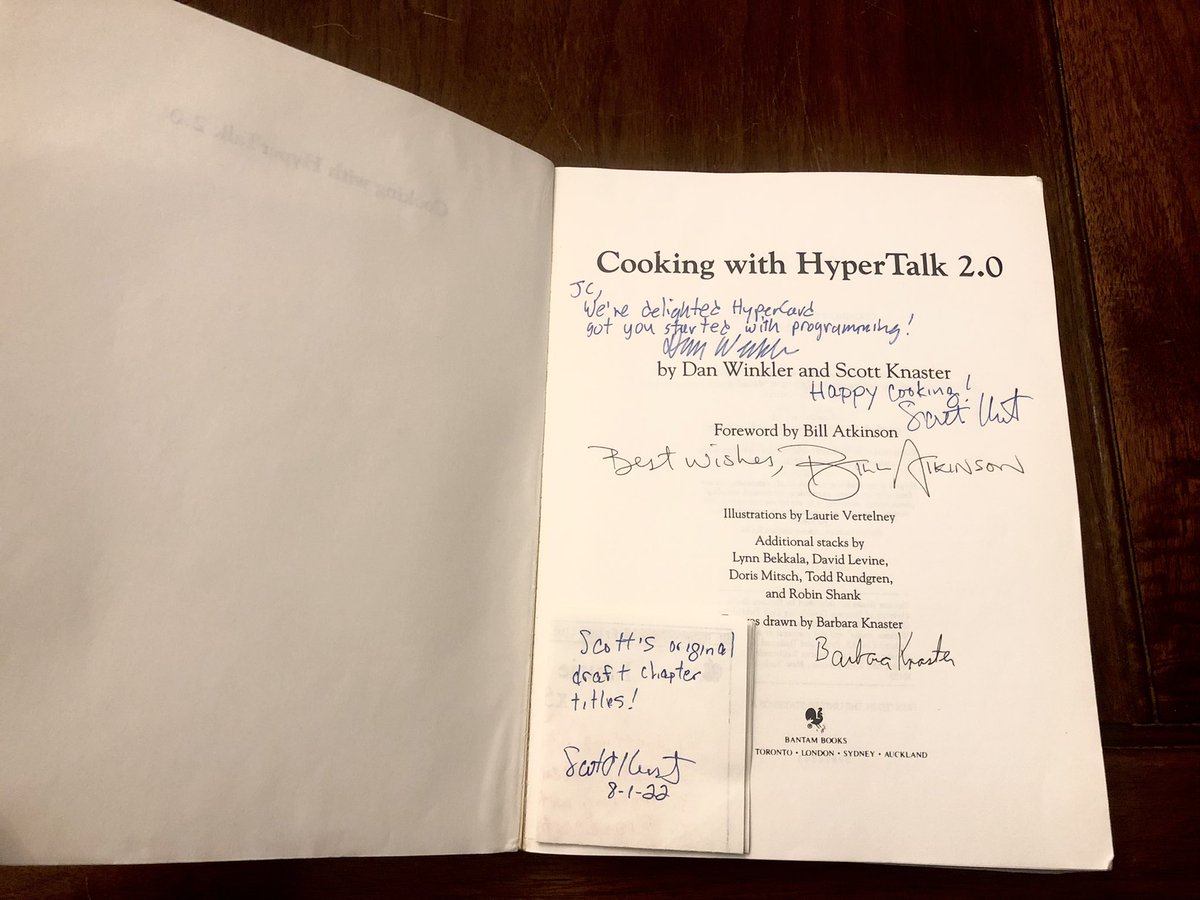 Cooking with HyperTalk 2.0
Cooking with HyperTalk 2.0
JC,
We're delighted HyperCard
got you started with programming!
Dan Winkler
by Dan Winkler and Scott Knaster
Happy cooking!
Scott Knaster
Foreword by Bill Atkinson
Best wishes, Bill Atkinson
Illustrations by Laurie Vertelney
Additional stacks by
Lynn Bekkala, David Levine,
Doris Mitsch, Todd Rundgren,
and Robin Shank
drawn by Barbara Knaster
Barbara Knaster
Scott's original
draft chapter
titles!
Scott Knaster
8-1-22
BANTAM BOOKS
TORONTO · LONDON · SYDNEY · AUCKLAND